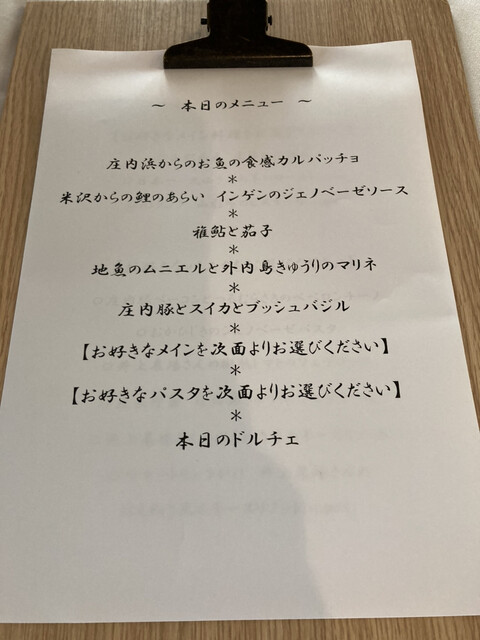 ～ 本日のメニュー ～
庄内浜からのお魚の食感カルパッチョ
＊
米沢からの鯉のあらい インゲンのジェノベーゼソース
＊
稚鮎と茄子
＊
地魚のムニエルと外内島きゅうりのマリネ
＊
庄内豚とスイカとブッシュバジル
＊
【お好きなメインを次面よりお選びください】
＊
【お好きなパスタを次面よりお選びください】
＊
本日のドルチェ